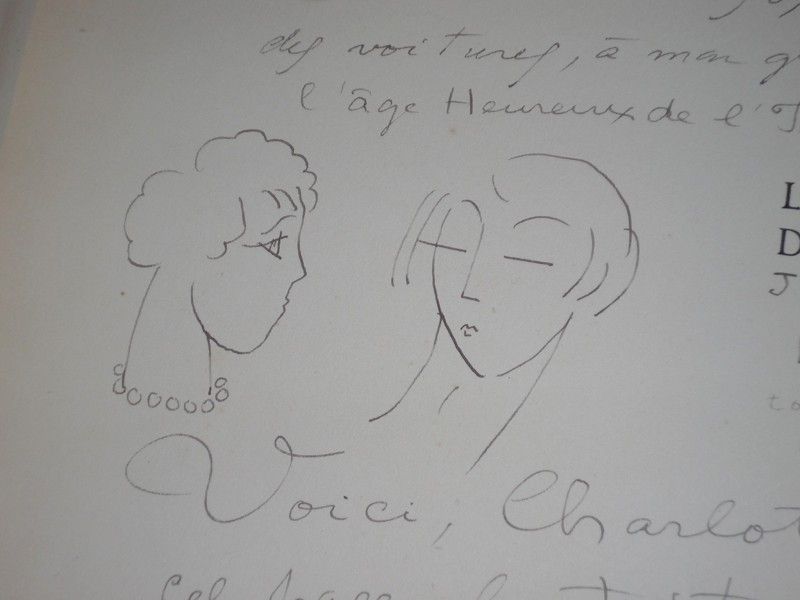 des voitures, à mon
l'âge Heureux de l'
L
D
J
Voici, Charlot